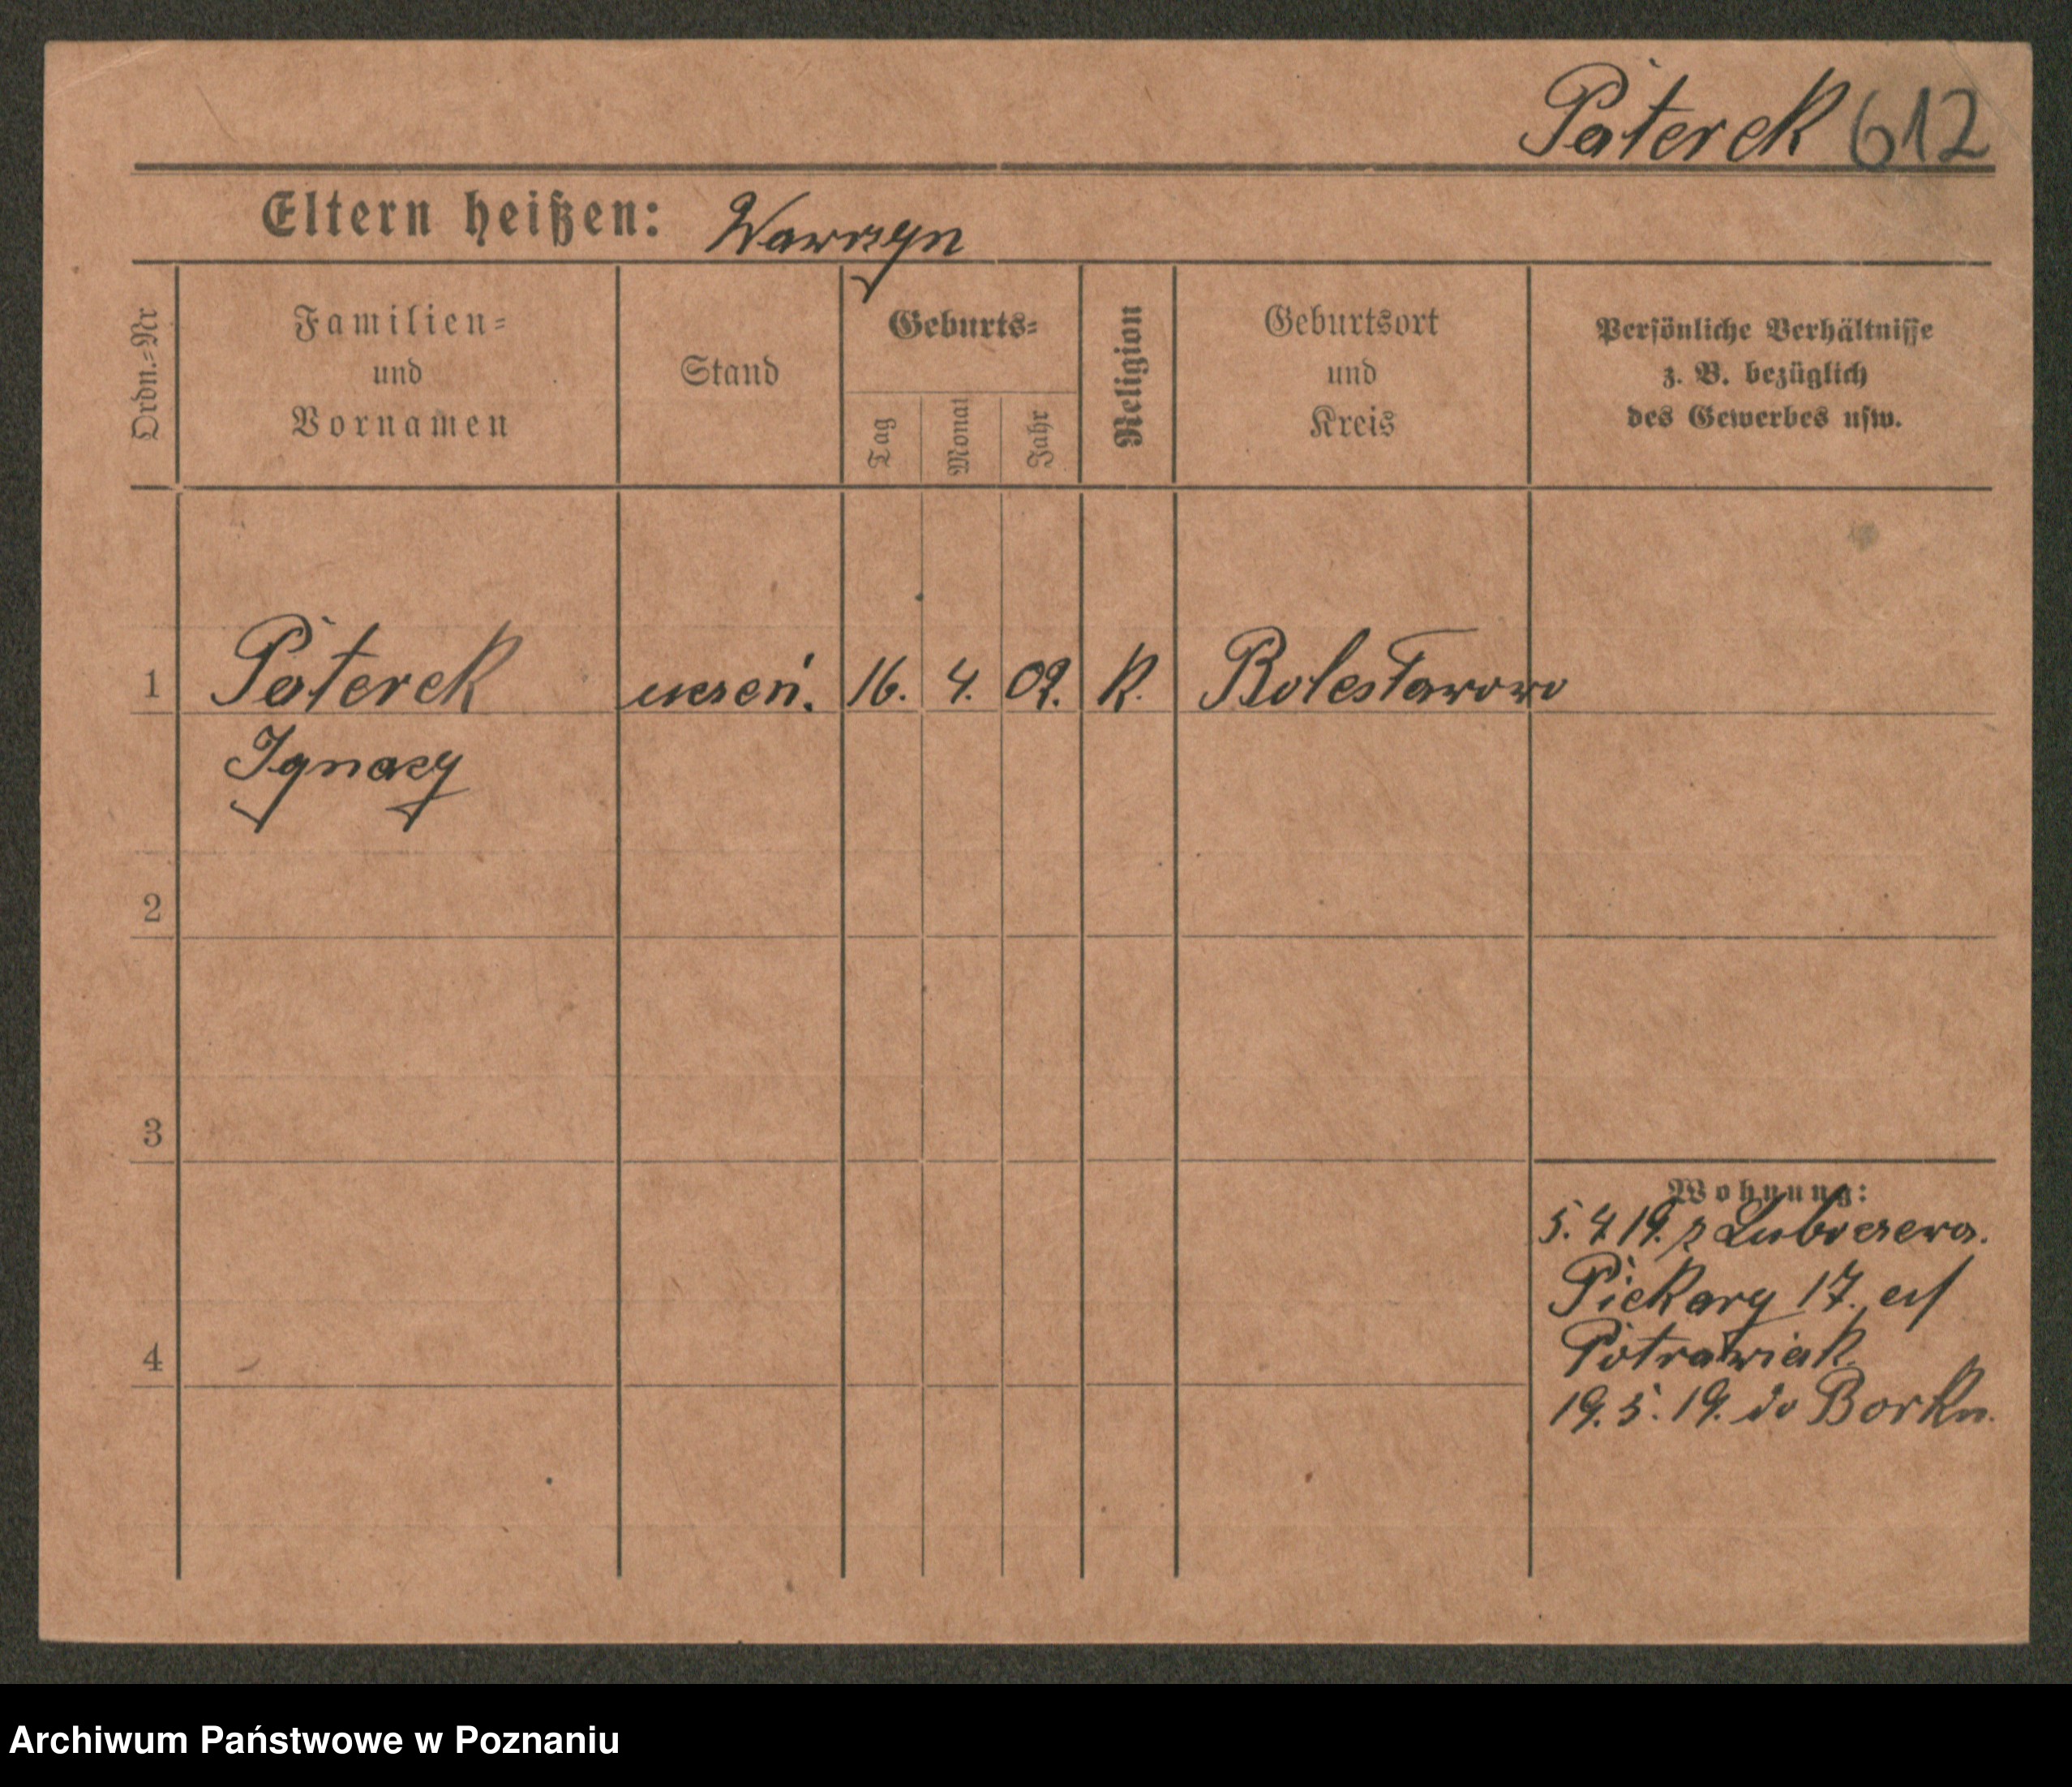 Paterek 612
Eltern heißen: Wawrzyn
Ordn.-Nr
Familien-
und
Vornamen
Stand
Geburts-
Tag
Monat
Jahr
Religion
Geburtsort
und
Kreis
Persönliche Verhältnisse
z. B. bezüglich
des Gewerbes usw.
1 Paterek uczeń. 16. 4. 02. K. Bolesławowo
Ignacy
2
3
Wohnung:
5. 4 19. z Luboczewa.
Piekary 17.
4
Potrawiak.
19. 5. 19. do Borku.
Archiwum Państwowe w Poznaniu